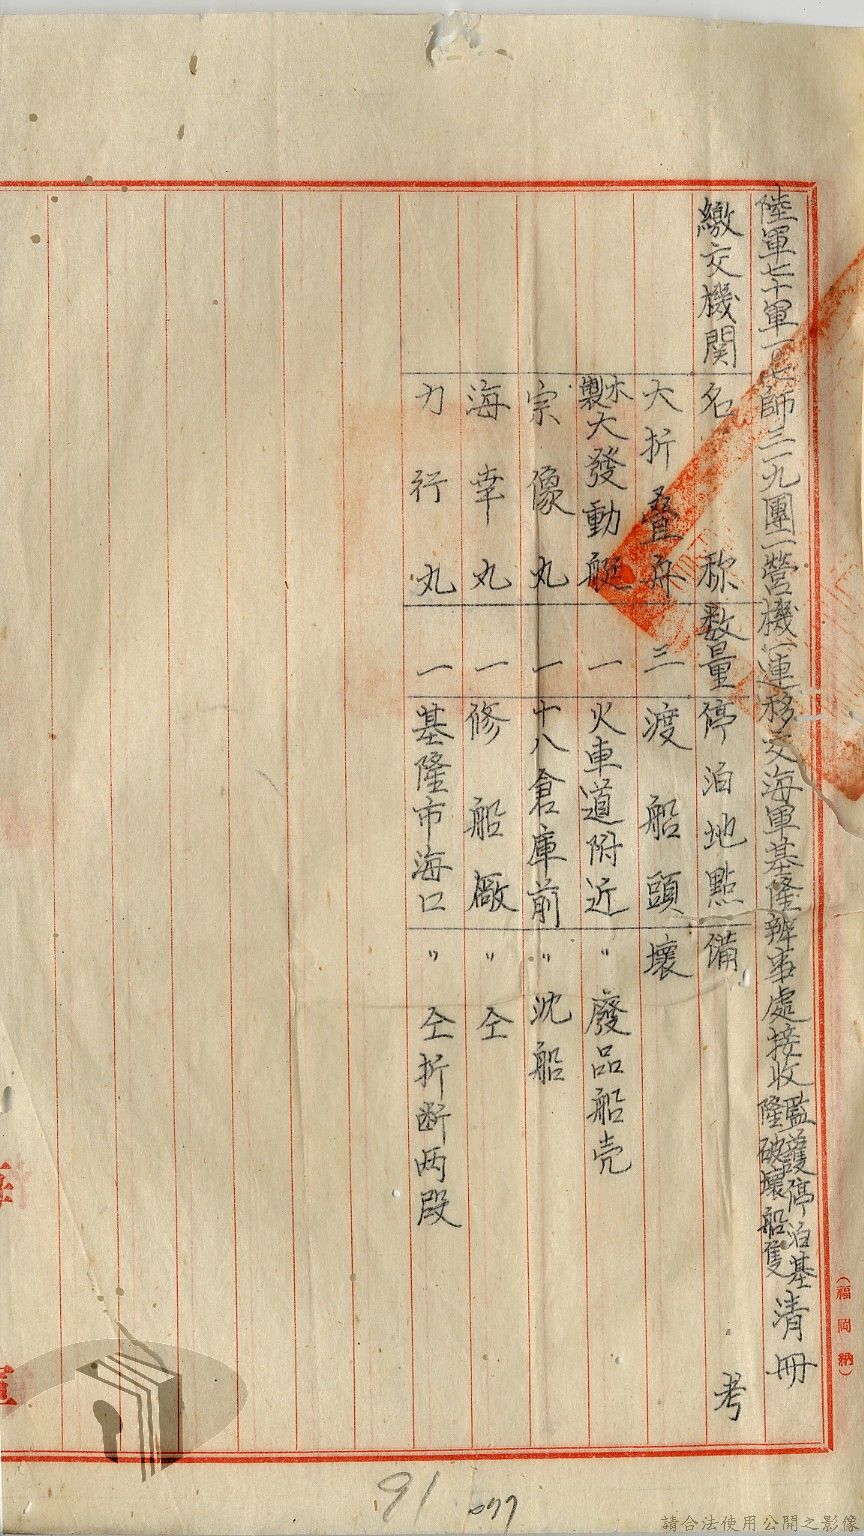 陸軍七十軍一〇七師三一九團一營機一連移交海軍基隆辦事處接收監護停泊基隆破壞船隻清冊
繳交機関名称数量停泊地點備考
大折疊舟三渡船頭壞
木製大發動艇一火車道附近〃廢品船壳
宗像丸一十八倉庫前〃沈船
海幸丸一修船廠〃仝
力行丸一基隆市海口〃仝折断两段
(福岡納)
91
077
請合法使用公開之影像